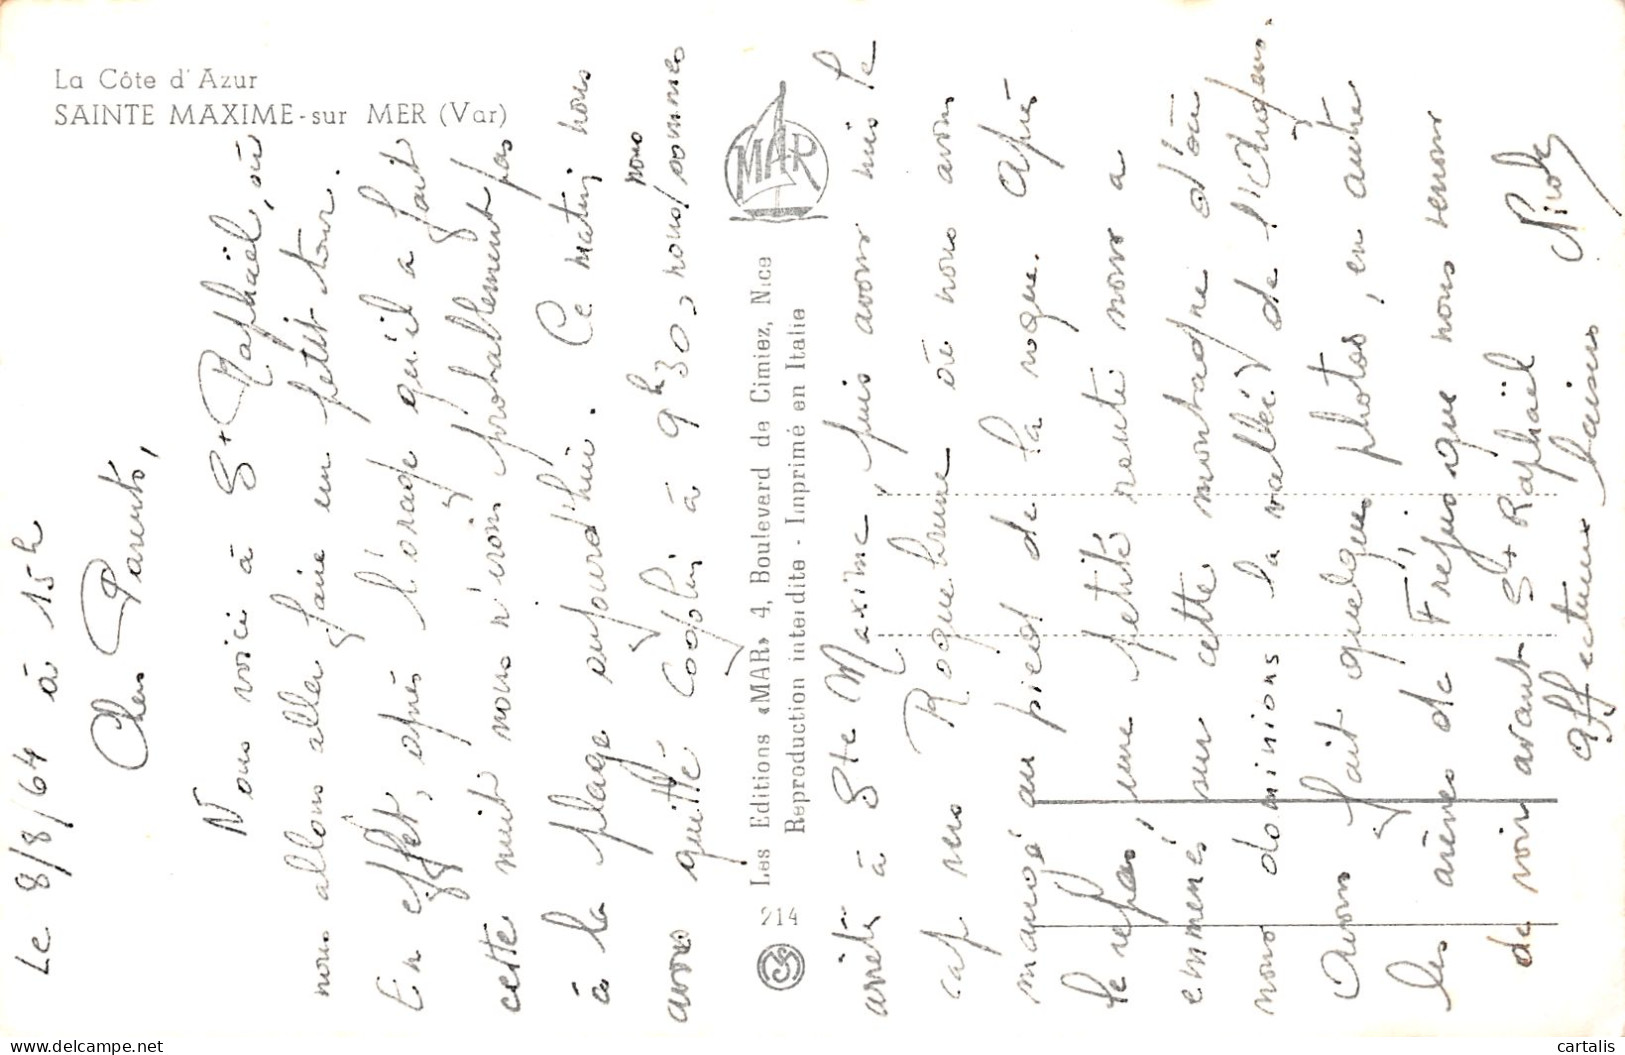 La Côte d'Azur
SAINTE MAXIME-sur MER (Var)
Le 8/8/64 à 15h
Chers Parents,
Nous voici à St Raphaël, où
nous allons aller faire un petit tour.
En effet, après l'orage qu'il a fait
cette nuit nous n'irons probablement pas
à la plage aujourd'hui. Ce matin, nous
avons quitté Cogolin à 9h30, nous nous sommes
MAR
214 Les Editions «MAR» 4, Boulevard de Cimiez, Nice
Reproduction interdite - Imprimé en Italie
arrêté à Ste Maxime, puis avons mis le
cap vers Roquebrune où nous avons
mangé au pied de la roque. Après
le repas, une petite route nous a
emmenés sur cette montagne d'où
nous dominions la vallée de l'Argens.
Avons fait quelques photos, en autre
les arènes de Fréjus que nous venons
de voir avant St Raphaël
Affectueux baisers
cartalis